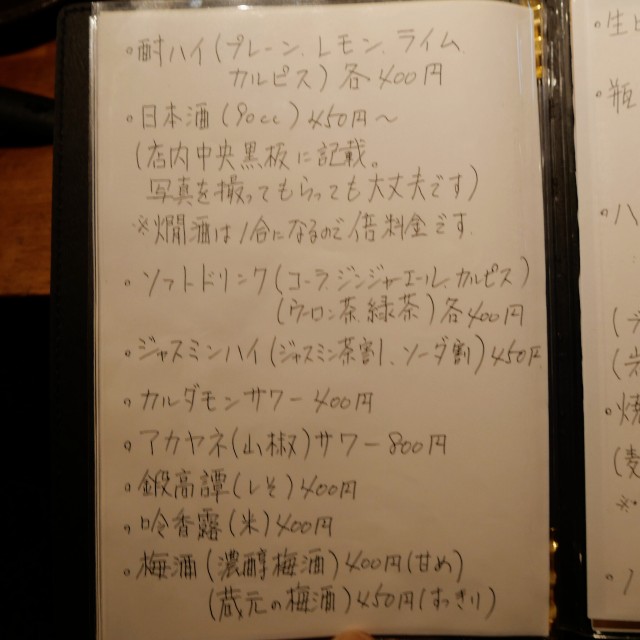 ・酎ハイ(プレーン、レモン、ライム
カルピス)各400円
・日本酒(90cc)450円〜
(店内中央黒板に記載。
写真を撮ってもらっても大丈夫です)
※燗酒は1合になるので倍料金です。
・ソフトドリンク(コーラ、ジンジャエール、カルピス)
(ウーロン茶、緑茶)各400円
・ジャスミンハイ(ジャスミン茶割、ソーダ割)450円
・カルダモンサワー400円
・アカヤネ(山椒)サワー800円
・鍛高譚(しそ)400円
・吟香露(米)400円
・梅酒(濃醇梅酒)400円(甘め)
(蔵元の梅酒)450円(すっきり)
・生
・瓶
・ハ
・焼
(麦
※